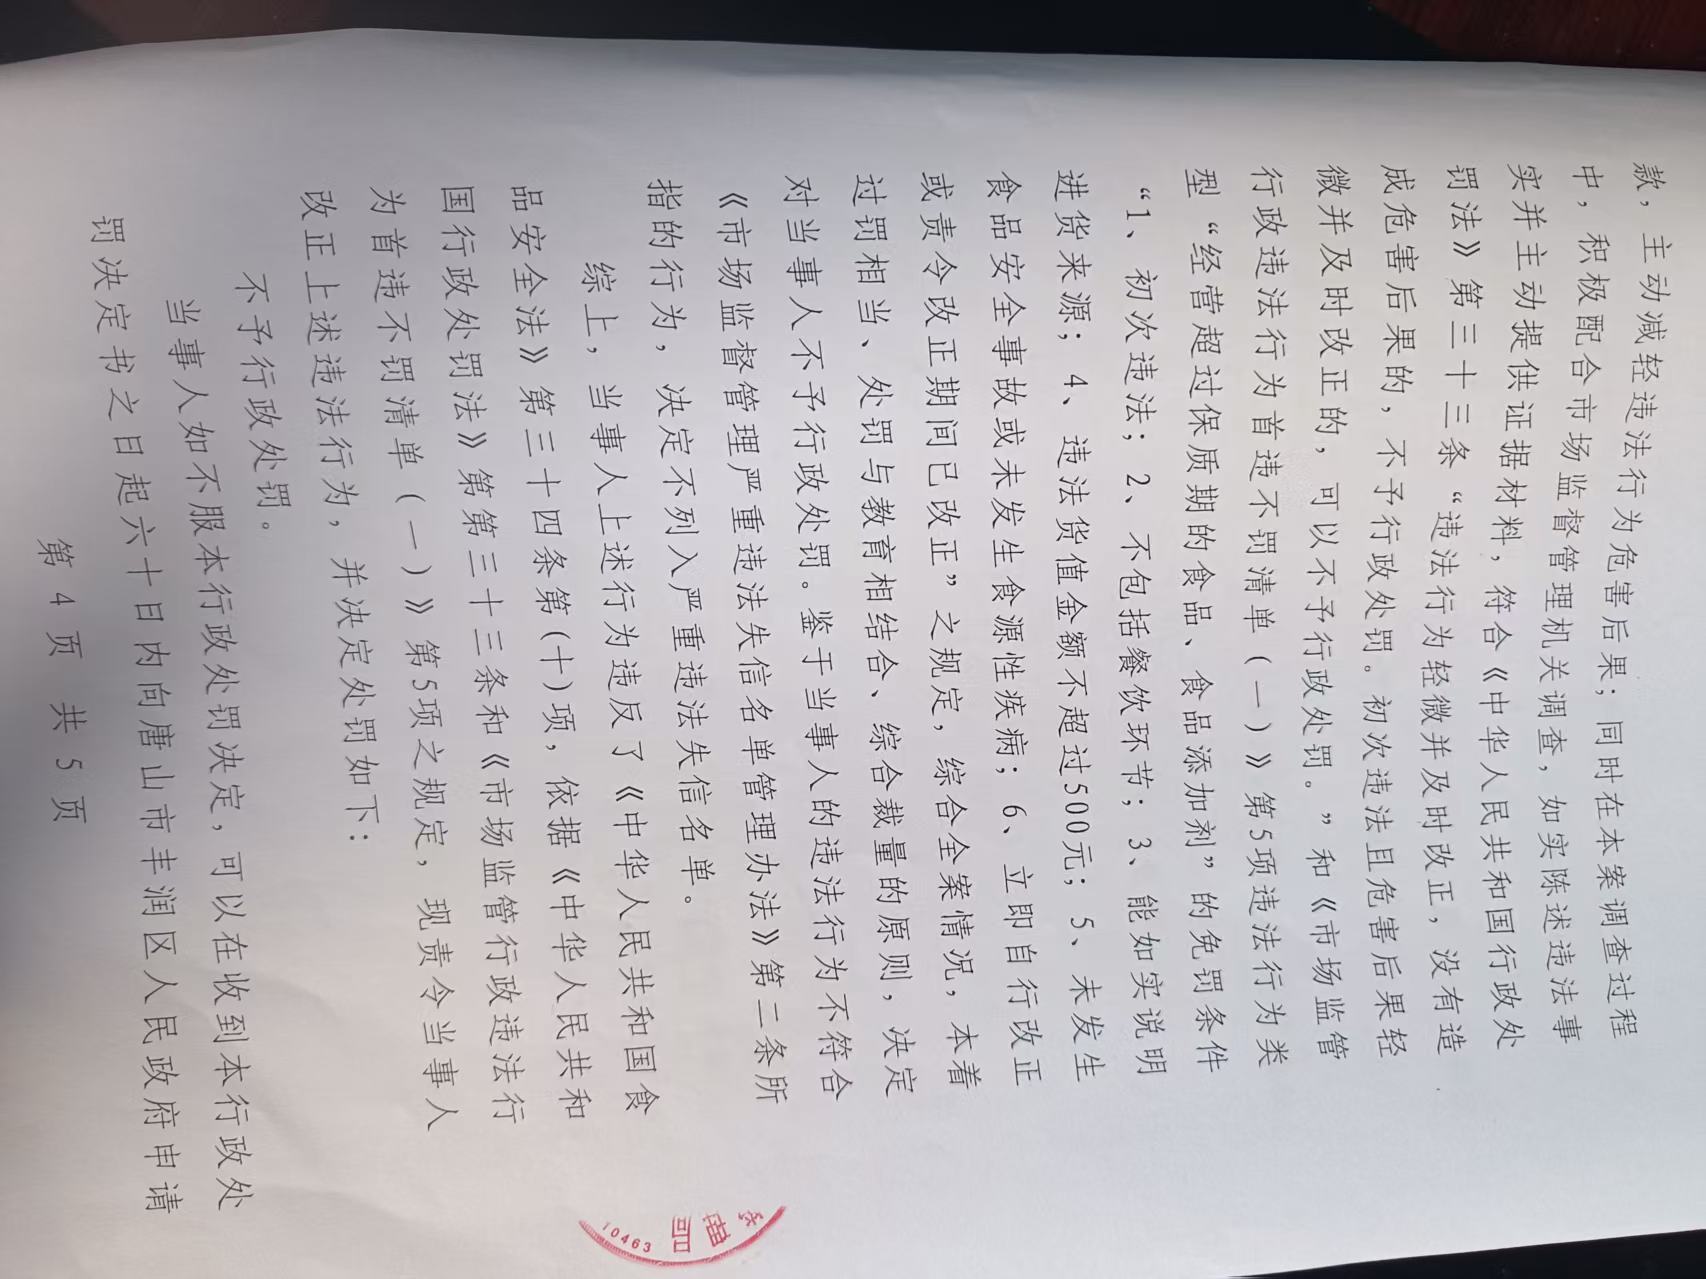 款，主动减轻违法行为危害后果；同时在本案调查过程
中，积极配合市场监督管理机关调查，如实陈述违法事
实并主动提供证据材料，符合《中华人民共和国行政处
罚法》第三十三条“违法行为轻微并及时改正，没有造
成危害后果的，不予行政处罚。初次违法且危害后果轻
微并及时改正的，可以不予行政处罚。”和《市场监管
行政违法行为首违不罚清单（一）》第5项违法行为类
型“经营超过保质期的食品、食品添加剂”的免罚条件
“1、初次违法；2、不包括餐饮环节；3、能如实说明
进货来源；4、违法货值金额不超过500元；5、未发生
食品安全事故或未发生食源性疾病；6、立即自行改正
或责令改正期间已改正”之规定，综合全案情况，本着
过罚相当、处罚与教育相结合、综合裁量的原则，决定
对当事人不予行政处罚。鉴于当事人的违法行为不符合
《市场监督管理严重违法失信名单管理办法》第二条所
指的行为，决定不列入严重违法失信名单。
综上，当事人上述行为违反了《中华人民共和国食
品安全法》第三十四条第(十)项，依据《中华人民共和
国行政处罚法》第第三十三条和《市场监管行政违法行
为首违不罚清单（一）》第5项之规定，现责令当事人
改正上述违法行为，并决定处罚如下：
不予行政处罚。
当事人如不服本行政处罚决定，可以在收到本行政处
罚决定书之日起六十日内向唐山市丰润区人民政府申请
第 4 页 共 5 页
10463